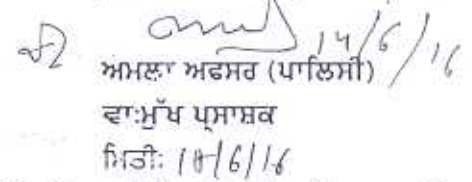 14/6/16
ਅਮਲਾ ਅਫਸਰ (ਪਾਲਿਸੀ)
ਵਾ:ਮੁੱਖ ਪ੍ਰਸਾਸ਼ਕ
ਮਿਤੀ: 14/6/16